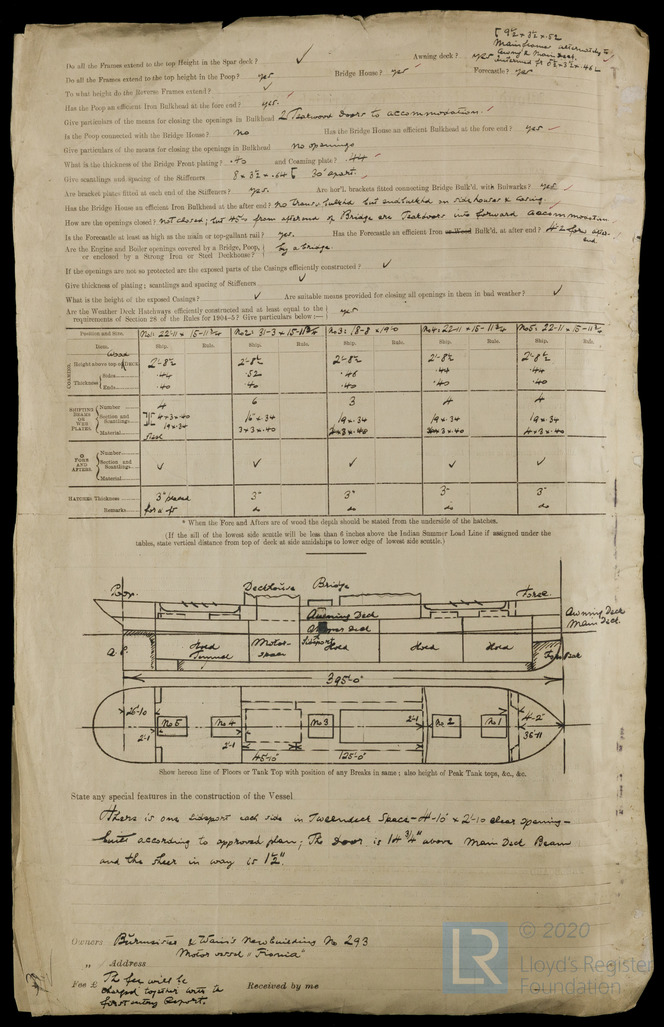 [ 9½ × 3½ × .52
Main frame alternately
Awning & Main Deck
Do all the Frames extend to the top height in the Spar deck? ✓ Awning deck? yes
Do all the Frames extend to the top height in the Poop? yes Bridge House? yes Forecastle? yes
To what height do the Reverse Frames extend? ✓
Has the Poop an efficient Iron Bulkhead at the fore end? yes.
Give particulars of the means for closing the openings in Bulkhead 2 Teakwood Doors to accommodation.
Is the Poop connected with the Bridge House? no Has the Bridge House an efficient Bulkhead at the fore end? yes
Give particulars of the means for closing the openings in Bulkhead no openings
What is the thickness of the Bridge Front plating? .40 and Coaming plate? .44
Give scantlings and spacing of the Stiffeners 8 × 3½ × .64 [ 30" apart.
Are bracket plates fitted at each end of the Stiffeners? yes. Are hor'l. brackets fitted connecting Bridge Bulk'd. with Bulwarks? yes.
Has the Bridge House an efficient Iron Bulkhead at the after end? no trans. bulkhd but endbulkhd on sidehouses & Casing.
How are the openings closed? not closed; but from after end of Bridge are Teakdoors into forward accommodation
Is the Forecastle at least as high as the main or top-gallant rail? yes. Has the Forecastle an efficient Iron or Wood Bulk'd, at after end? 4'-2" fore after end.
Are the Engine and Boiler openings covered by a Bridge, Poop,
or enclosed by a Strong Iron or Steel Deckhouse? by a bridge
If the openings are not so protected are the exposed parts of the Casings efficiently constructed? ✓
Give thickness of plating; scantlings and spacing of Stiffeners ✓
What is the height of the exposed Casings? ✓ Are suitable means provided for closing all openings in them in bad weather? ✓
Are the Weather Deck Hatchways efficiently constructed and at least equal to the
requirements of Section 28 of the Rules for 1904-5? Give particulars below:— yes
Position and Size. No1: 22-11 × 15-11¾ No2: 31-3 × 15-11¾ No3: 18-8 × 19-0 No4: 22-11 × 15-11¾ No5: 22-11 × 15-11¾
Item. Ship. Rule. Ship. Rule. Ship. Rule. Ship. Rule. Ship. Rule.
COAMING. Height above top of Wood DECK 2'-8½ 2'-8½ 2'-8½ 2'-8½ 2'-8½
Thickness Sides .44 .52 .46 .44 .44
Ends .40 .40 .40 .40 .40
SHIFTING BEAMS OR WEB PLATES. Number 4 6 3 4 4
Section and Scantlings 4×3×.40 3×3×.40
19×.34 19×.34 19×.34 19×.34
Material Steel
* FORE AND AFTERS. Number
Section and Scantlings ✓ ✓ ✓ ✓ ✓
Material
HATCHES Thickness 3" 3" 3" 3" 3"
Remarks do do do do
* When the Fore and Afters are of wood the depth should be stated from the underside of the hatches.
(If the sill of the lowest side scuttle will be less than 6 inches above the Indian Summer Load Line if assigned under the
tables, state vertical distance from top of deck at side amidships to lower edge of lowest side scuttle.)
Poop. Deckhouse Bridge Forec.
Awning Deck
Awning Deck
Main Deck.
Sideport
A.P. Hold Motor-space Hold Hold Hold Fore Peak
Tunnel
395'-0"
26-10 No5 No4 No3 2'-1 No2 No1 4'-2"
2'-1 2'-1 36-11
45'-10" 125'-0"
Show hereon line of Floors or Tank Top with position of any Breaks in same; also height of Peak Tank tops, &c., &c.
State any special features in the construction of the Vessel
There is one sideport each side in Tweendeck Space - 4'-10" × 2'-10 clear opening -
built according to approved plan; The Door is 14¾" above Main Deck Beam
and the sheer in way is 1½".
Owners Burmeister & Wain's Newbuilding No 293
Motor vessel "Fionia"
„ Address
Fee £ The fee will be Received by me
charged together with the
first entry Report.
LR © 2020
Lloyd's Register
Foundation